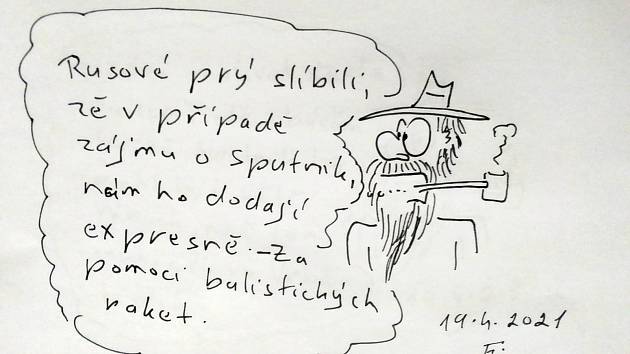 Rusové prý slíbili,
žě v případě
zájmu o Sputnik,
nám ho dodají
expresně.-Za
pomoci balistických
raket.
19.4.2021